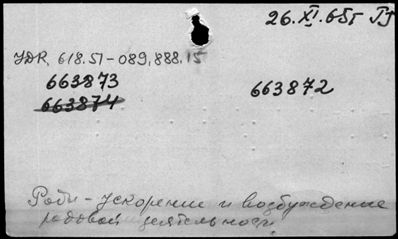 26.XI.65г
УДК. 618.51-089.888.15
663873
663872
663874
Роды - ускорение и возбуждение
родовой деятельности.